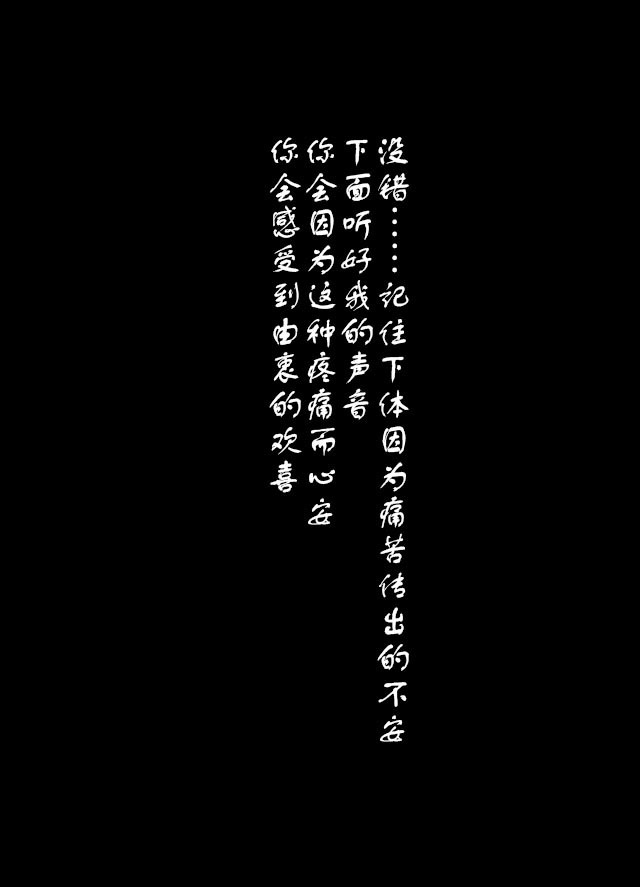 没错……记住下体因为痛苦传出的不安
下面听好我的声音
你会因为这种疼痛而心安
你会感受到由衷的欢喜